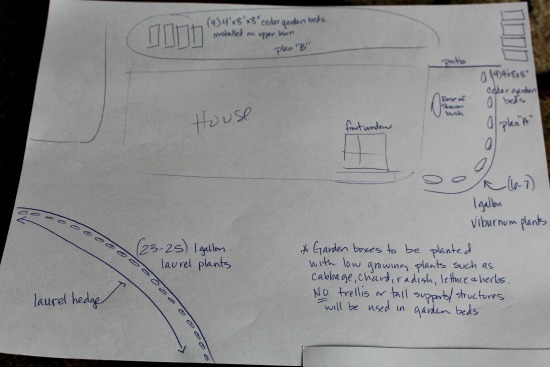 (4) 4'x8'x8" cedar garden beds
installed on upper lawn
plan "B"
patio
(4) 4'x8'x8"
cedar garden
beds
plan "A"
Rose of
Sharon
bush
House
front window
(6-7)
1 gallon
viburnum plants
(23-25) 1 gallon
laurel plants
laurel hedge
* Garden boxes to be planted
with low growing plants such as
cabbage, chard, radish, lettuce & herbs.
NO trellis or tall supports/structures
will be used in garden beds